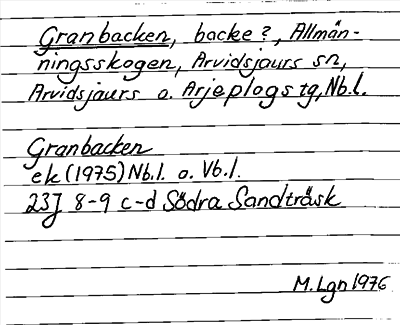 Granbacken, backe?, Allmän-
ningsskogen, Arvidsjaurs sn,
Arvidsjaurs o. Arjeplogs tg, Nb.l.
Granbacken
ek (1975) Nb.l. o. Vb.l.
23J 8-9 c-d Södra Sandträsk
M. Lgn 1976